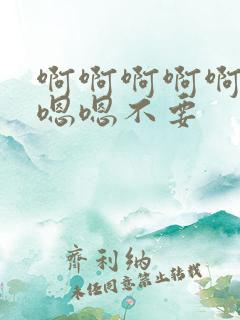 啊啊啊啊啊
嗯嗯不要
齊利納
未经同意禁止转载